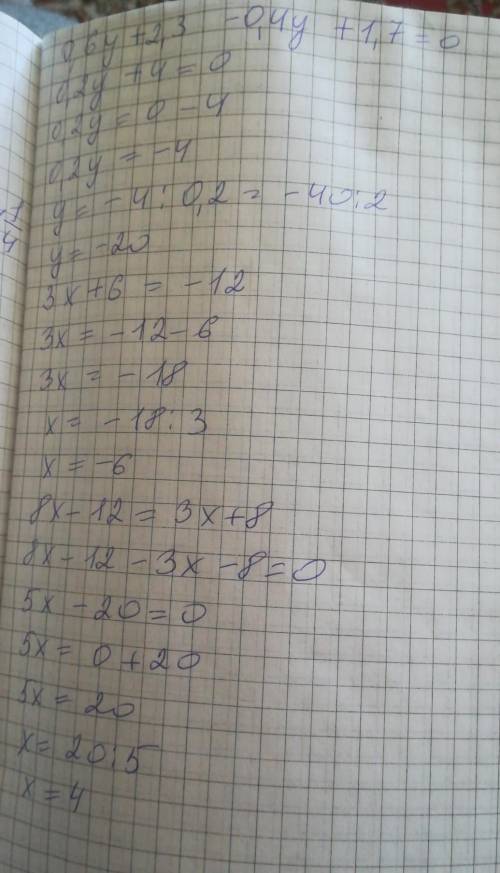 0,6y+2,3 -0,4y +1,7=0
0,2y +4=0
0,2y= 0-4
0,2y = -4
y= -4: 0,2= -40:2
y= -20
3x+6 = -12
3x= -12-6
3x= -18
x= -18:3
x= -6
8x-12= 3x+8
8x-12-3x-8=0
5x -20=0
5x= 0+20
5x= 20
x= 20:5
x=4
4